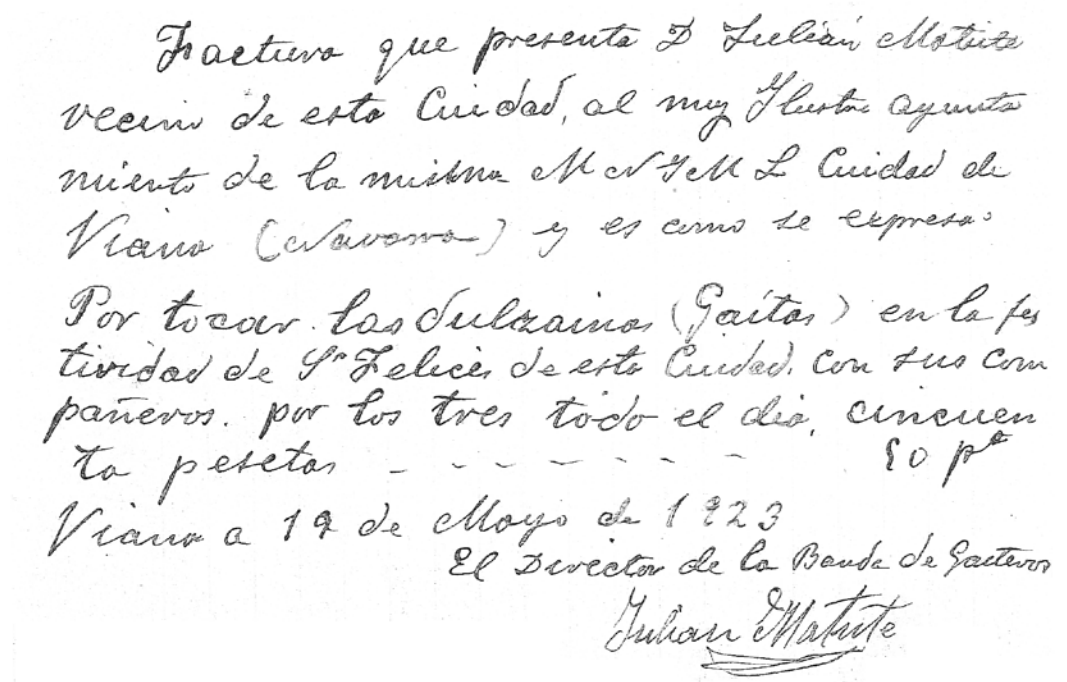 Factura que presenta D Julián Matute
vecino de esta Cuidad, al muy Ilustre ayunta
miento de la misma M N Y M L Cuidad de
Viana (Navarra) y es como se expresa:
Por tocar las dulzainas (Gaitas) en la fes
tividad de Sn Felices de esta Cuidad. con sus com
pañeros. por los tres todo el dia, cincuen
ta pesetas - - - - - - - 50 pts
Viana a 19 de Mayo de 1923
El Director de la Banda de Gaiteros
Julian Matute